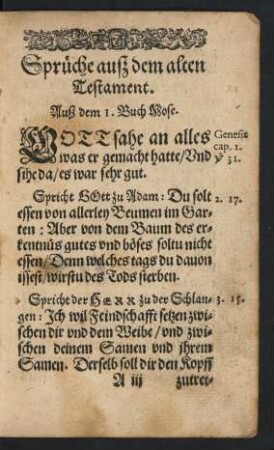 Sprüche auß dem alten
Testament.
Auß dem 1. Buch Mose.
GOTT sahe an alles
was er gemacht hatte/Vnd
sihe da/es war sehr gut.
Genesis
cap. 1.
℣ 31.
Spricht GOtt zu Adam: Du solt
essen von allerley Beumen im Gar-
ten: Aber von dem Baum des er-
kentnüs gutes vnd böses soltu nicht
essen/Denn welches tags du dauon
issest/wirstu des Tods sterben.
2. 17.
Spricht der HERR zu der Schlan-
gen: Ich wil Feindschafft setzen zwi-
schen dir vnd dem Weibe/vnd zwi-
schen deinem Samen vnd jhrem
Samen. Derselb soll dir den Kopff
3. 15.
A iij
zutret-